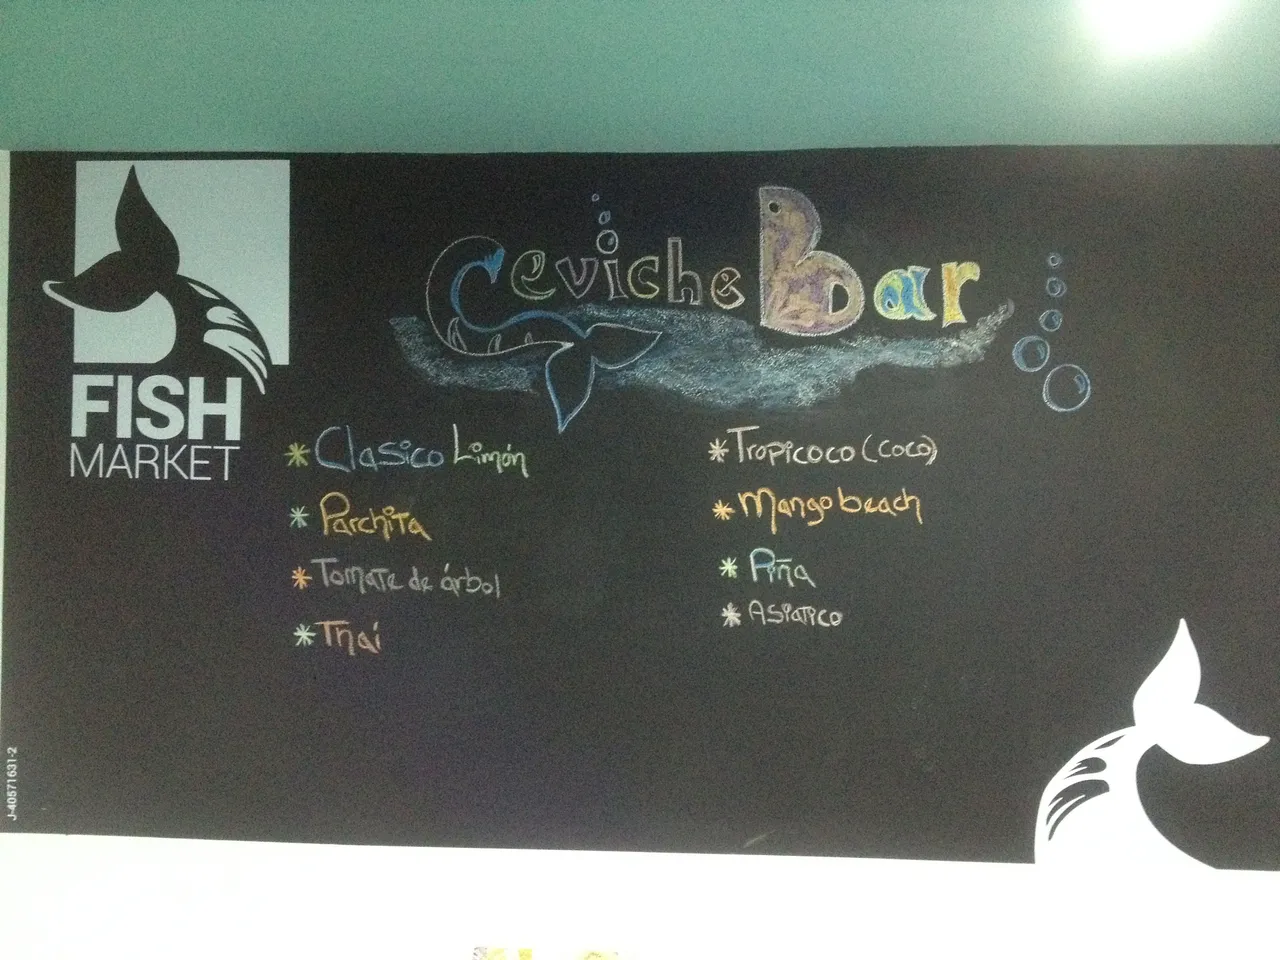 FISH
MARKET
Ceviche Bar
* Clasico Limón
* Parchita
* Tomate de árbol
* Thai
* Tropicoco (coco)
* Mango beach
* Piña
* Asiatico
J-40571631-2